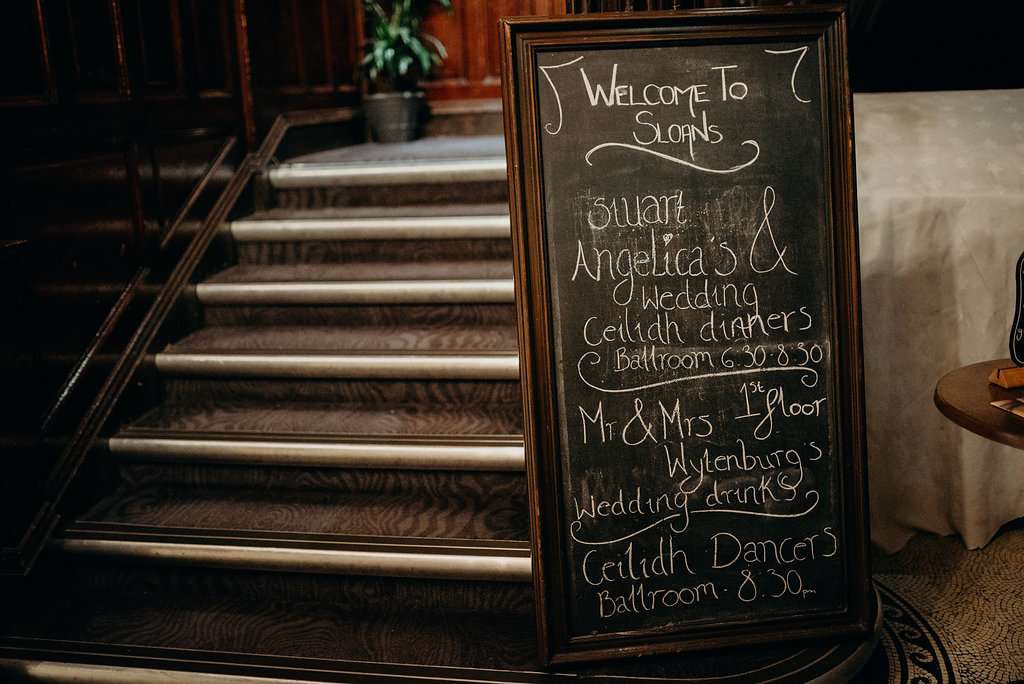 Welcome To
Sloans
Stuart &
Angelica's
Wedding
Ceilidh dinners
Ballroom 6.30-8.30
1st floor
Mr & Mrs
Wytenburg's
Wedding drinks
Ceilidh Dancers
Ballroom - 8.30pm